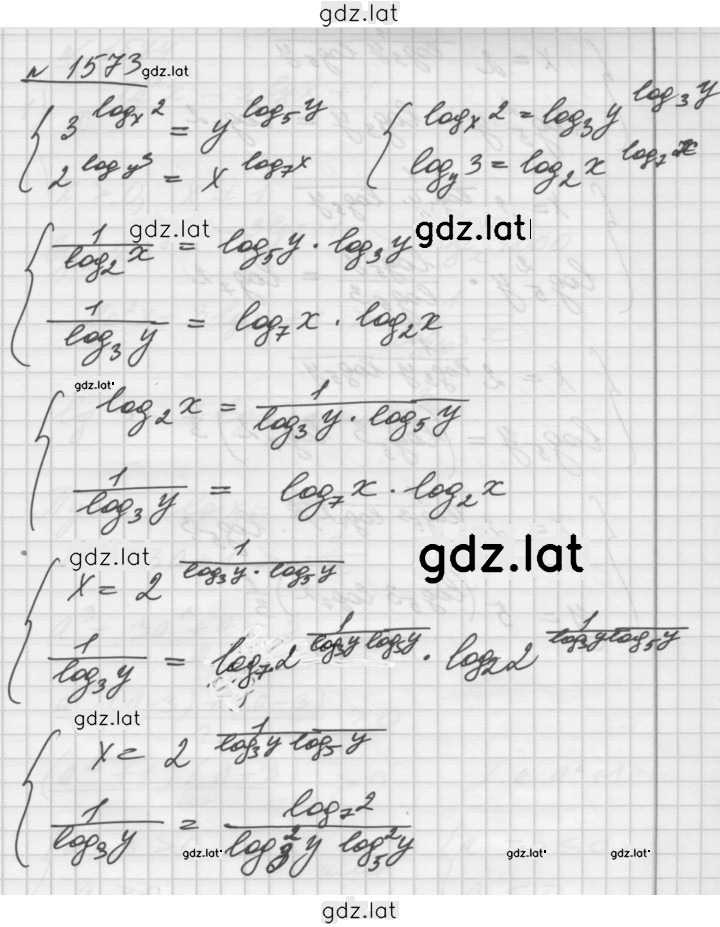 gdz.lat
N 1573 gdz.lat
{ 3^(log_x 2) = y^(log_5 y)   { log_x 2 = log_3 y^(log_3 y)
2^(log_y 3) = x^(log_7 x)   log_y 3 = log_2 x^(log_7 x)
gdz.lat gdz.lat
{ 1/(log_2 x) = log_5 y · log_3 y
1/(log_3 y) = log_7 x · log_2 x
gdz.lat
{ log_2 x = 1/(log_3 y · log_5 y)
1/(log_3 y) = log_7 x · log_2 x
gdz.lat gdz.lat
{ x = 2^(1/(log_3 y · log_5 y))
1/(log_3 y) = log_7 2^(1/(log_3 y log_5 y)) · log_2 2^(1/(log_3 y log_5 y))
gdz.lat
{ x = 2^(1/(log_3 y log_5 y))
1/(log_3 y) = (log_7 2)/(log_3^2 y log_5^2 y)
gdz.lat gdz.lat gdz.lat
gdz.lat